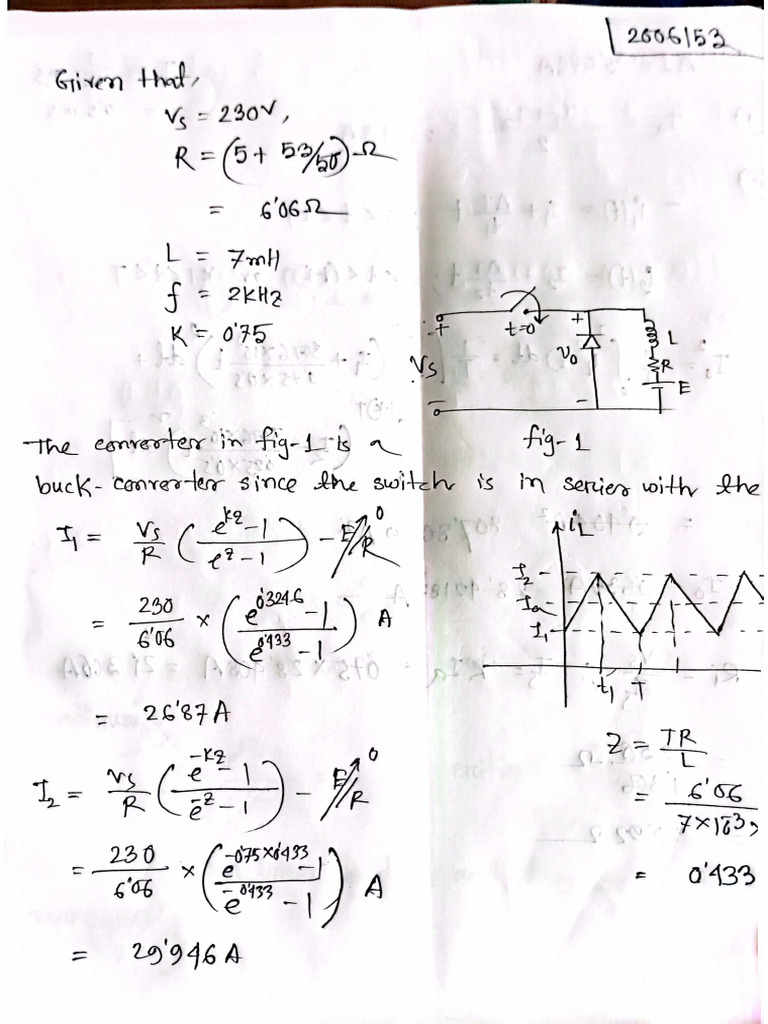 2006/53
Given that,
Vs = 230V,
R = (5 + 53/50) Ω
= 6'06Ω
L = 7mH
f = 2KHz
K = 0'75
+ t=0 + L
Vs υo R
E
- -
fig-1
The converter in fig-1 is a
buck-converter since the switch is in series with the
I1 = Vs/R (e^kz - 1 / e^z - 1) - E/R 0
= 230/6'06 × (e^0'3246 - 1 / e^0'433 - 1) A
= 26'87 A
iL
I2
Ia
I1
t1 T
I2 = Vs/R (e^-kz - 1 / e^-z - 1) - E/R 0
= 230/6'06 × (e^-0'75×0'433 - 1 / e^-0'433 - 1) A
= 29'946 A
Z = TR/L
= 6'06 / 7×10^-3
= 0'433